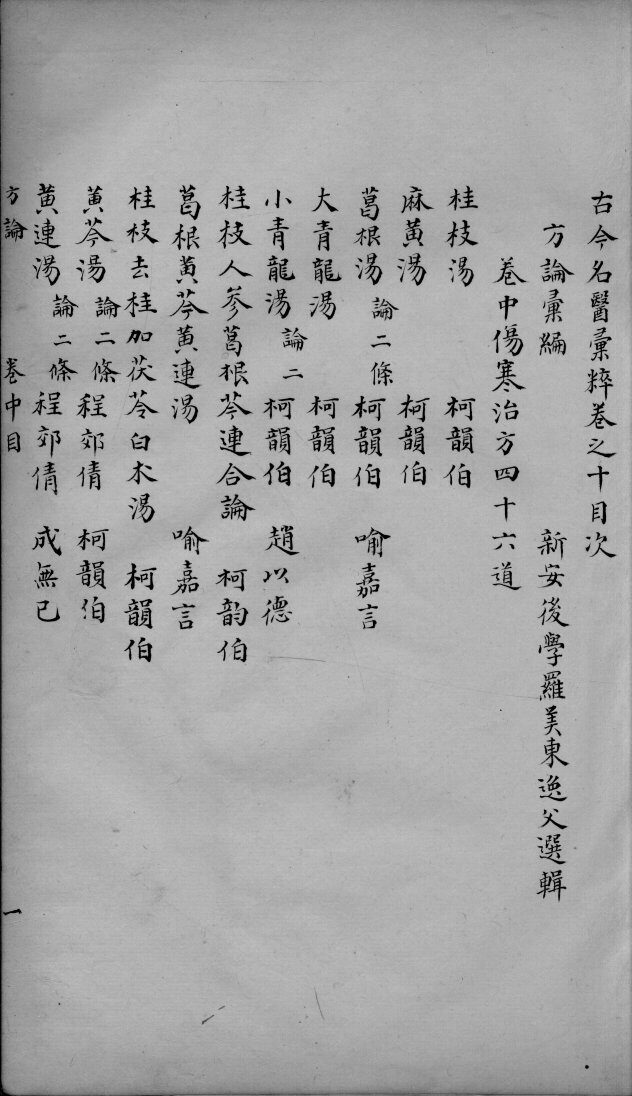 古今名醫彙粹卷之十目次
方論彙編 新安後學羅美東逸父選輯
卷中傷寒治方四十六道
桂枝湯 柯韻伯
麻黃湯 柯韻伯
葛根湯 論二條 柯韻伯 喻嘉言
大青龍湯 柯韻伯
小青龍湯 論二 柯韻伯 趙以德
桂枝人參葛根芩連合論 柯韵伯
葛根黃芩黃連湯 喻嘉言
桂枝去桂加茯苓白术湯 柯韻伯
黃芩湯 論二條 程郊倩 柯韻伯
黃連湯 論二條 程郊倩 成無已
方論 卷中目 一